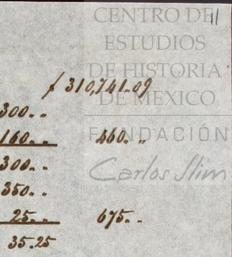 CENTRO DE
11
ESTUDIOS
DE HISTORIA
$ 310,741.09
DE MÉXICO
300..
FUNDACIÓN
160.. 460..
Carlos Slim
300..
350..
25.. 675..
35.25